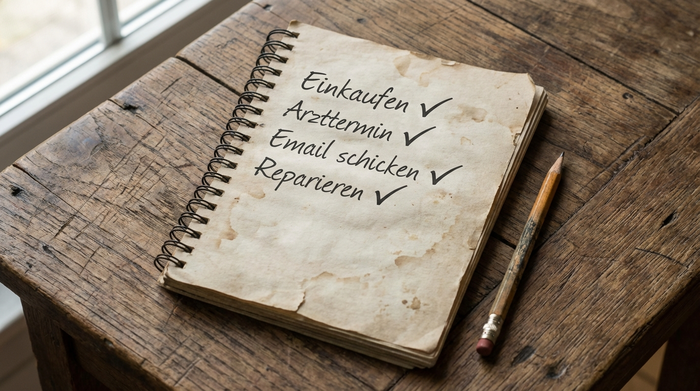 Einkaufen ✓
Arzttermin ✓
Email schicken ✓
Reparieren ✓